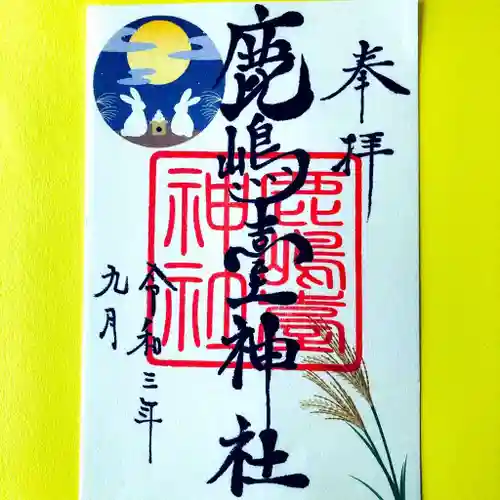 奉拝
鹿嶋臺神社
鹿嶋臺神社
令和三年
九月